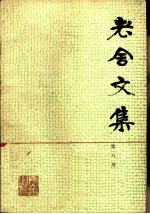 老舍文集
第八卷